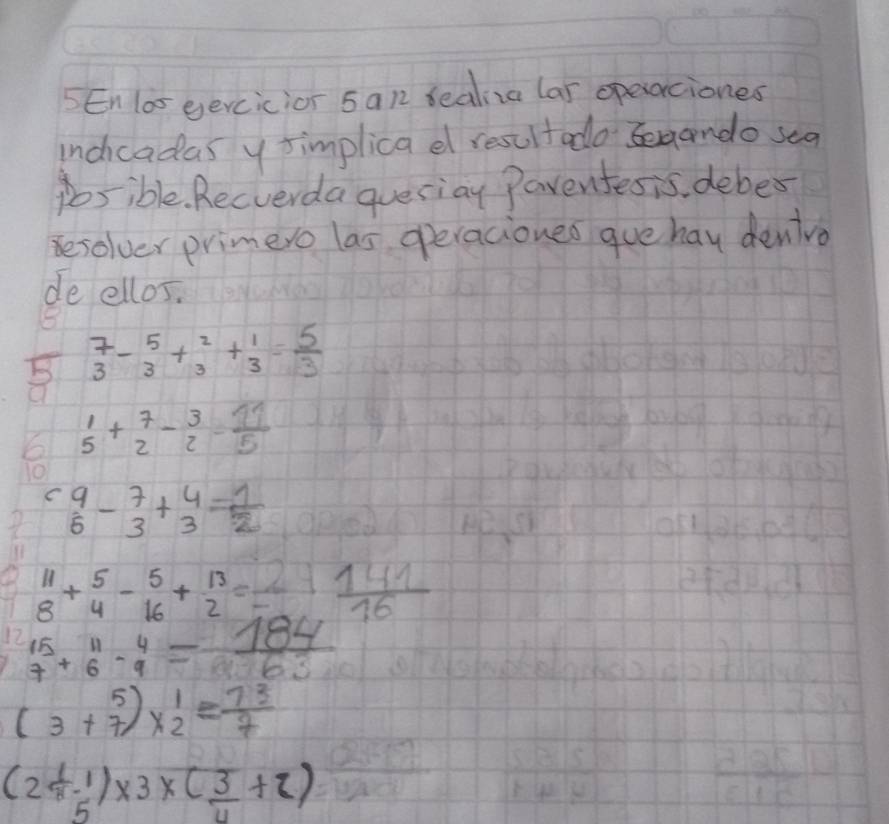 5 En los ejercicios 5 a 12 realiza las operaciones
indicadas y simplica el resultado cuando sea
posible. Recuerda que si ay Parentesis. debes
resolver primero las operaciones que hay dentro
de ellos.
5 7/3 - 5/3 + 2/3 + 1/3 = 5/3
9
6 1/5 + 7/2 - 3/2 = 11/5
10
c 9/6 - 7/3 + 4/3 = 1/2
11
11/8 + 5/4 - 5/16 + 13/2 = 141/16
12 15/7 + 11/6 - 4/9 = 184/63
(3 + 5/7) x 1/2 = 13/7
- 1/5) x 3 x (3/4 + 2) =